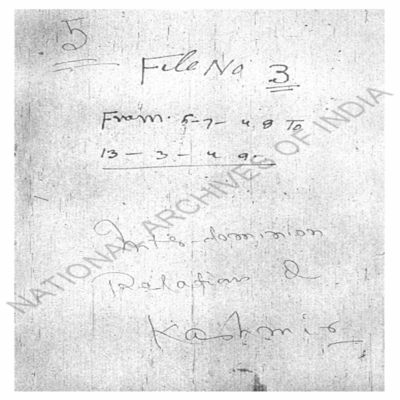 5
File No 3
From. 5-7-48 To
13-3-49.
Inter dominion
Relations &
Kashmir
NATIONAL ARCHIVES OF INDIA